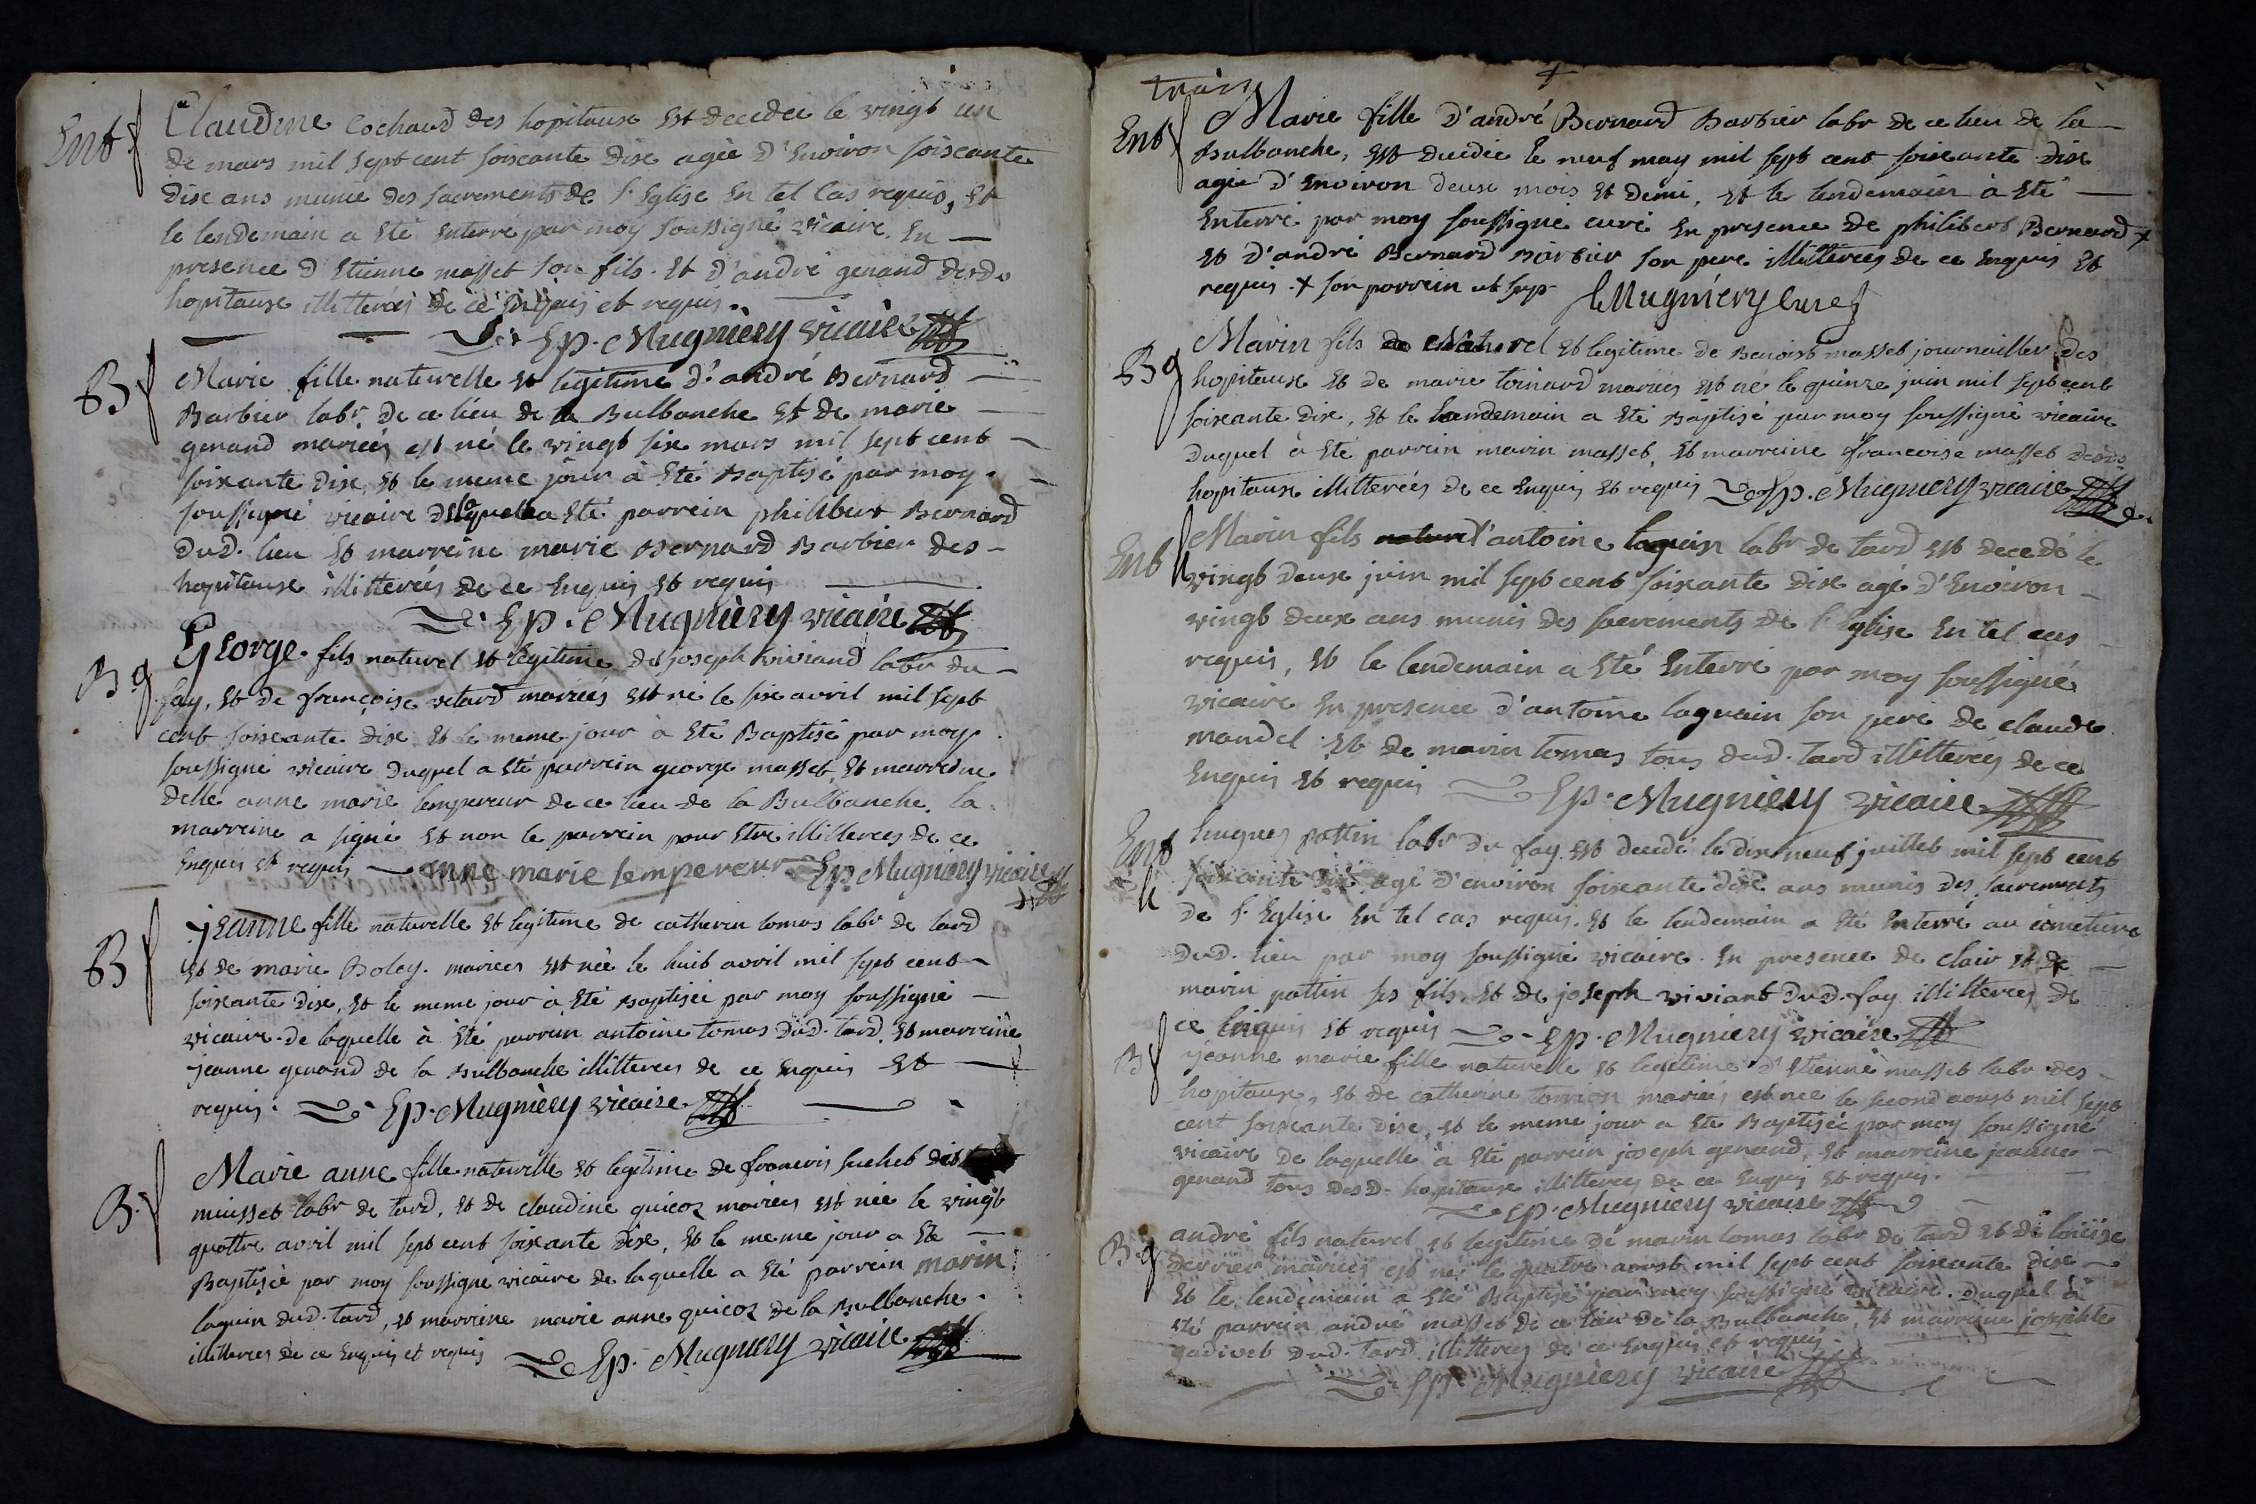 Ent f Claudine Cochaud des hopitaux Est decedee le vingt un
de mars mil sept cent soixante dix agée d'Environ soixante
dix ans munie des sacrements de l'Eglise En tel Cas requis, Et
le lendemain a Eté Enterre par moy soussigné vicaire. En
presence d'Etienne masset son fils. Et d'andré genand desd.
hopitaux illitterés de ce Enquis et requis.
Ep. Mugniery vicaire
B f Marie fille naturelle Et legitime d'andré Bernard
Barbier labr. de ce lieu de la Bulbanche Et de marie
genand mariés est né le vingt six mars mil sept cent
soixante dix, Et le meme jour à Eté Baptisé par moy
soussigné vicaire de laquelle a Eté parrein philibert Bernard
dud. lieu Et marreine marie Bernard Barbier des
hopitaux illitterés de ce Enquis Et requis
Ep. Mugniery vicaire
B g George fils naturel Et legitime de joseph viviand labr du
fay, Et de françoise vetard mariés Est né le six avril mil sept
cent soixante dix Et le meme jour à Eté Baptisé par moy
soussigné vicaire duquel a Eté parrein george masset, Et marreine
delle anne marie lempereur de ce lieu de la Bulbanche. la
marreine a signé Et non le parrein pour Etre illitteres de ce
Enquis et requis anne marie lempereur Ep Mugniery vicaire
B f jeanne fille naturelle Et legitime de catherin tomas labr de tard
Et de marie Boley mariees Est née le huit avril mil sept cent
soixante dix, Et le meme jour à Eté Baptisée par moy soussigné
vicaire de laquelle à Eté parrein antoine tomas dud. tard, Et marreine
jeanne genand de la Bulbanche illitteres de ce Enquis Et
requis. Ep. Mugniery vicaire
B. f Marie anne fille naturelle Et legitime de francois suchet dit
muisset labr de tard, Et de claudine quicoz mariées Est née le vingt
quattre avril mil sept cent soixante dix, Et le meme jour a Eté
Baptisée par moy soussigné vicaire de laquelle a Eté parrein marin
laguin dud. tard, Et marreine marie anne quicoz de la Bulbanche.
illitteres de ce Enquis et requis Ep. Mugniery vicaire
trois
Ent f Marie fille d'andré Bernard Barbier labr de ce lieu de la
Bulbanche, Est decedée le neuf may mil sept cent soixante dix
agée d'Environ deux mois Et demi, Et le lendemain à Eté
Enterré par moy soussigné curé En presence de philibert Bernard +
Et d'andré Bernard Barbier son pere illitterées de ce Enquis Et
requis. + son parrein ut sup. Mugniery Curé
B g Marin fils de Naturel Et legitime de Benoist masset journaillier des
hopitaux Et de marie toinard mariés Est né le quinze juin mil sept cent
soixante dix, Et le landemain a Eté Baptisé par moy soussigné vicaire
duquel à Eté parrein marin masset, Et marreine francoise masset desd.
hopitaux illitterés de ce Enquis Et requis Ep. Mugniery vicaire
Ent Marin fils natur d'antoine laguin labr de tard Est decedé le
vingt deux juin mil sept cent soixante dix agé d'Environ
vingt deux ans munis des sacrements de l'Eglise En tel cas
requis, Et le lendemain a Eté Enterré par moy soussigné
vicaire En presence d'antoine laguain son pere de claude
mandel Et de marin tomas tous dud. tard illitterés de ce
Enquis Et requis Ep. Mugniery vicaire
Ent hugues pottin labr du fay Est decedé le dix neuf juillet mil sept cent
soixante dix agé d'environ soixante dix ans munis des sacrements
de l'Eglise En tel cas requis. Et le lendemain a Eté Enterré au cimetiere
dud. lieu par moy soussigné vicaire. En presence de clair Et de
marin pottin ses fils, Et de joseph viviant dud. fay illitteres de
ce Enquis Et requis Ep. Mugniery vicaire
B f jeanne marie fille naturelle Et legitime d'Etienne masset labr des
hopitaux, Et de catherine torrion mariés est née le second aoust mil sept
cent soixante dix, Et le meme jour a Eté Baptisée par moy soussigné
vicaire de laquelle à Eté parrein joseph genand, Et marreine jeanne
genand tous desd. hopitaux illitteres de ce Enquis Et requis.
Ep. Mugniery vicaire
B. g andré fils naturel Et legitime de marin tomas labr de tard Et de loüise
derrier mariées est né le quatre aoust mil sept cent soixante dix
Et le lendemain a Eté Baptisé par moy soussigné vicaire. duquel à
Eté parrein andré masset de ce lieu de la Bulbanche, Et marreine josephte
gadivet dud. tard illitteres de ce Enquis et requis
Ep. Mugniery vicaire